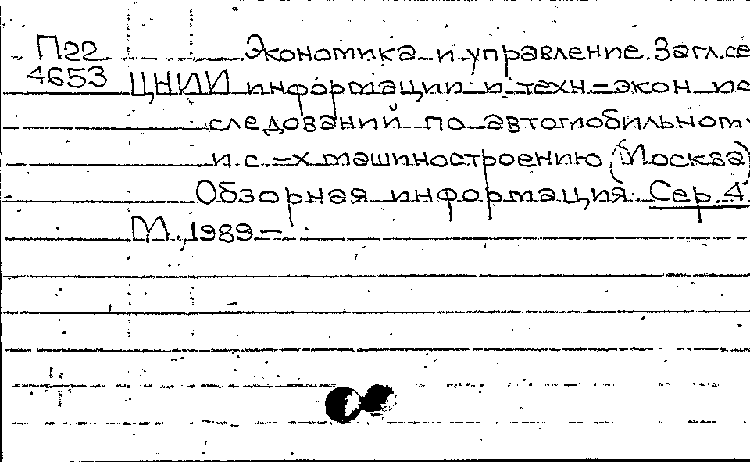 П22 Экономика и управление. Загл. се
4653 ЦНИИ информации и техн.-экон. ис
следований по автомобильному
и с.-х. машиностроению (Москва)
Обзорная информация. Сер. 4.
М., 1989-